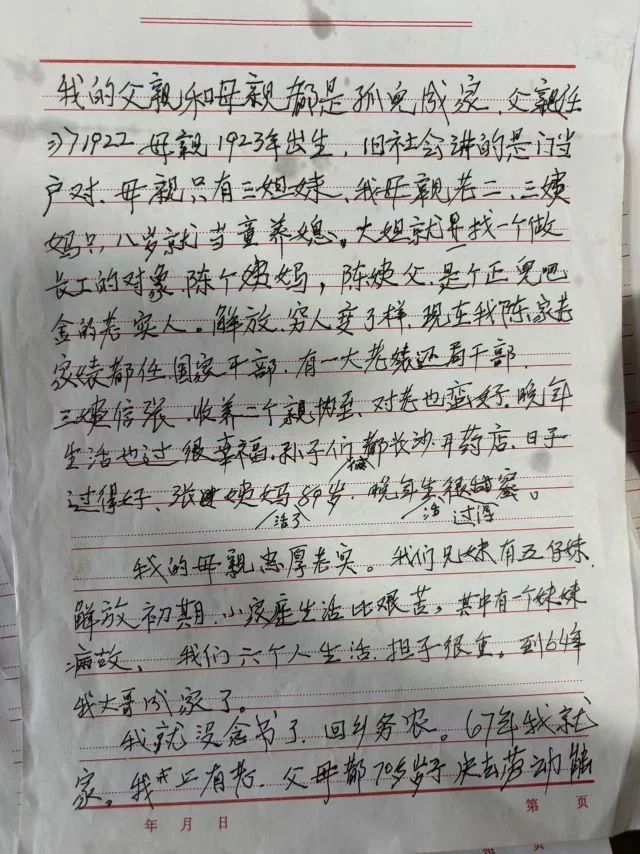 我的父亲和母亲都是孤儿成家，父亲任
1922 母亲1923年出生，旧社会讲的是门当
户对，母亲只有三姐妹，我母亲老二，三姨
妈只八岁就当童养媳。大姐就是找一个做
长工的对象，陈个姨妈，陈姨父，是个正儿吧
金的老实人。解放，穷人变了样，现在我陈家老
家婊都任国家干部，有一大老婊还局干部，
三姨信张，收养二个亲执至，对老也蛮好，晚年
生活也过很幸福，孙子们都长沙开药店，日子
过得好，张姨妈活了89岁，晚年生活过得很甜蜜。
我的母亲忠厚老实。我们兄妹有五仔妹，
解放初期，小家座生活比艰苦，其中有一个妹妹
病故，我们六个人生活，担子很重。到64年
我大哥成家了。
我就没念书了，回乡务农。67年我就
家。我上有老，父母都70多岁于失去劳动能
年 月 日
第 页